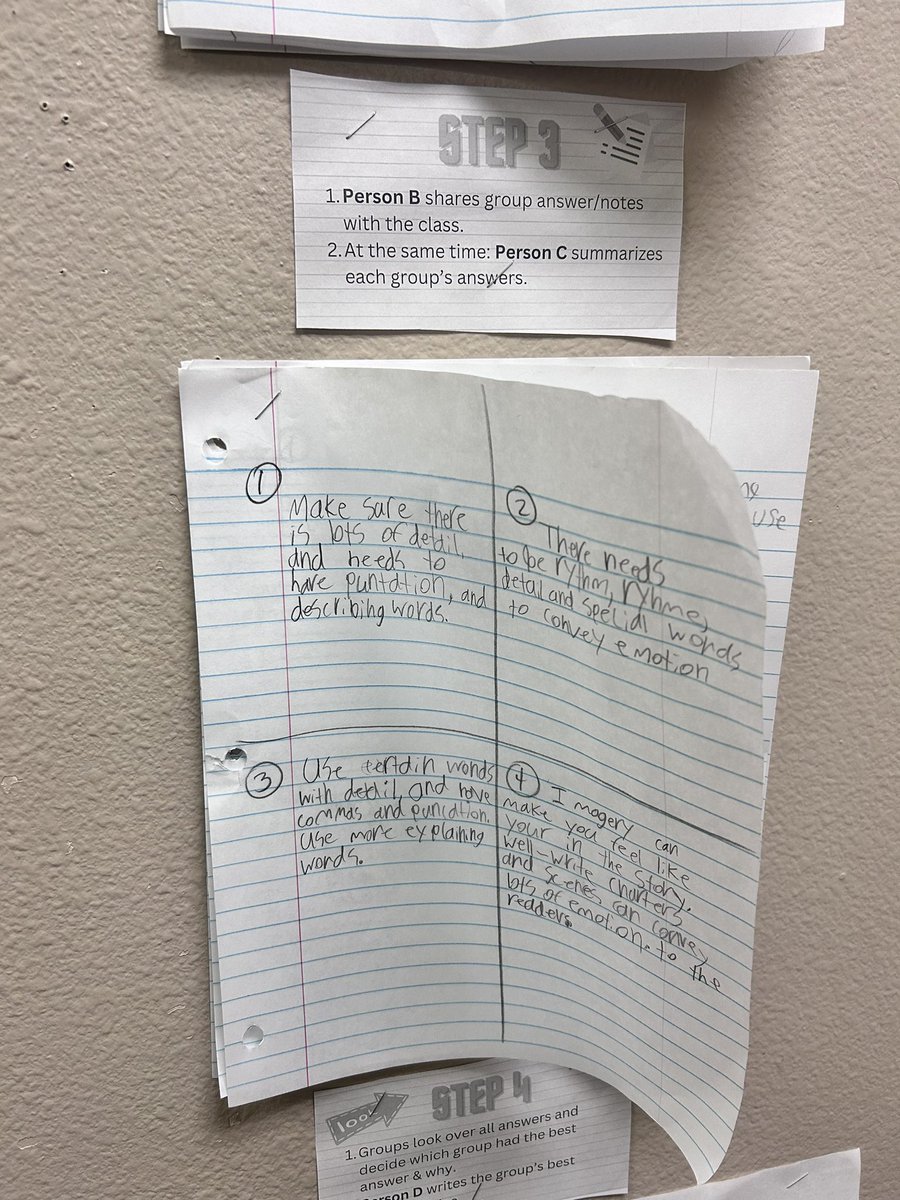 STEP 3
1. Person B shares group answer/notes
with the class.
2. At the same time: Person C summarizes
each group's answers.
1
Make sure there
is lots of detail,
and needs to
have puntation, and
describing words.
2
There needs
to be rythm, ryhme,
detail and special words
to convey emotion
use
3
Use certain words
with detail, and have
commas and puncation.
Use more explaining
words.
4
Imagery can
make you feel like
your in the story.
well-write charters
and scenes can convey
lots of emotion to the
readers.
look
STEP 4
1. Groups look over all answers and
decide which group had the best
answer & why.
Person D writes the group's best